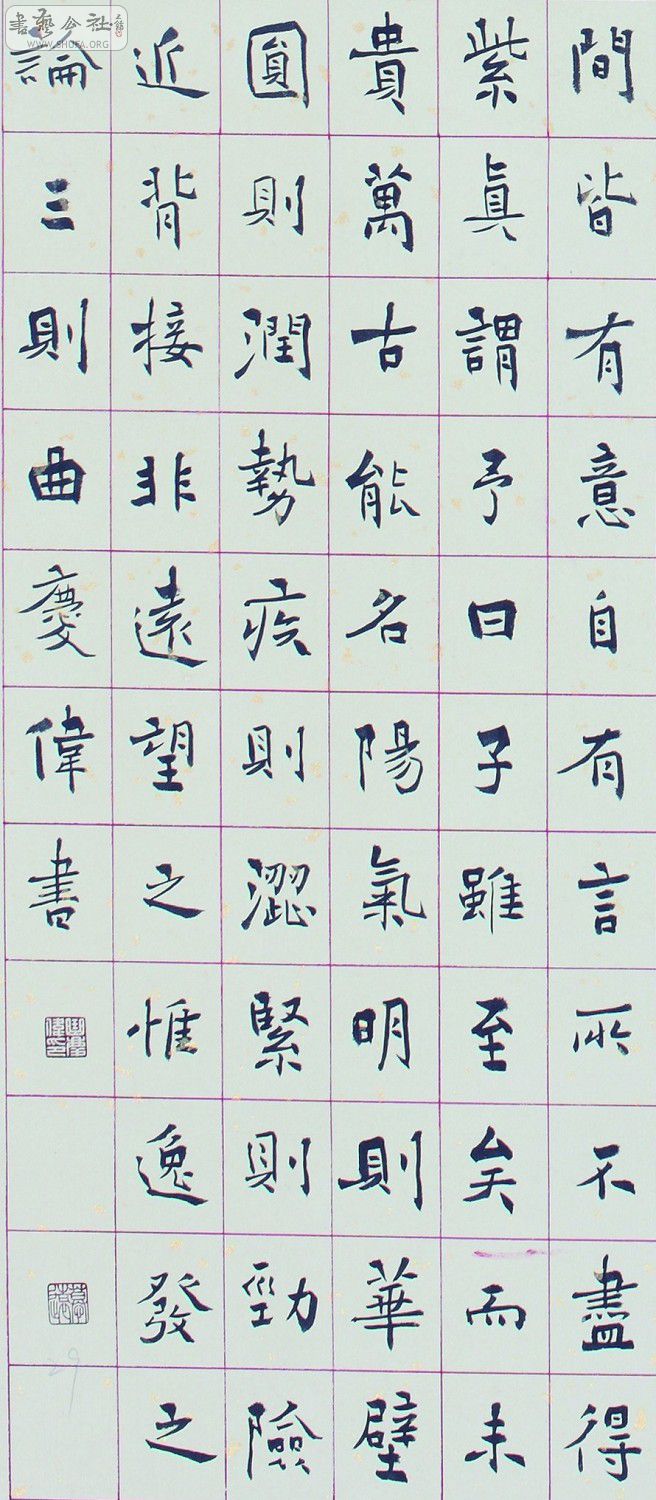 間皆有意自有言所不盡得
紫眞謂予曰子雖至矣而未
貴萬古能名陽氣明則華壁
圓則潤勢疾則澀緊則勁險
近背接非遠望之惟逸發之
論三則曲慶偉書
書藝公社
WWW.SHUFA.ORG